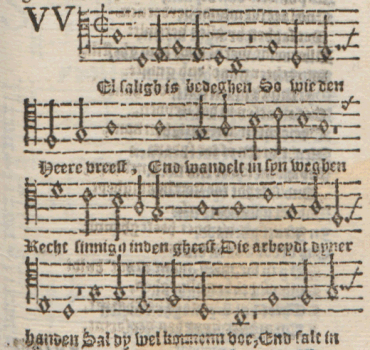 VV
El saligh is bedeghen So wie den
Heere vreest, End wandelt in syn weghen
Recht sinnig inden gheest. Die arbeydt dyner
handen Sal dy wel voe, End salt in